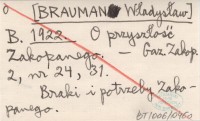 [BRAUMAN Władysław]
B. 1922. O przyszłość
Zakopanego. — Gaz. Zakop.
2, nr 24, 31.
Braki i potrzeby Zako-
panego.
BT1006/0960